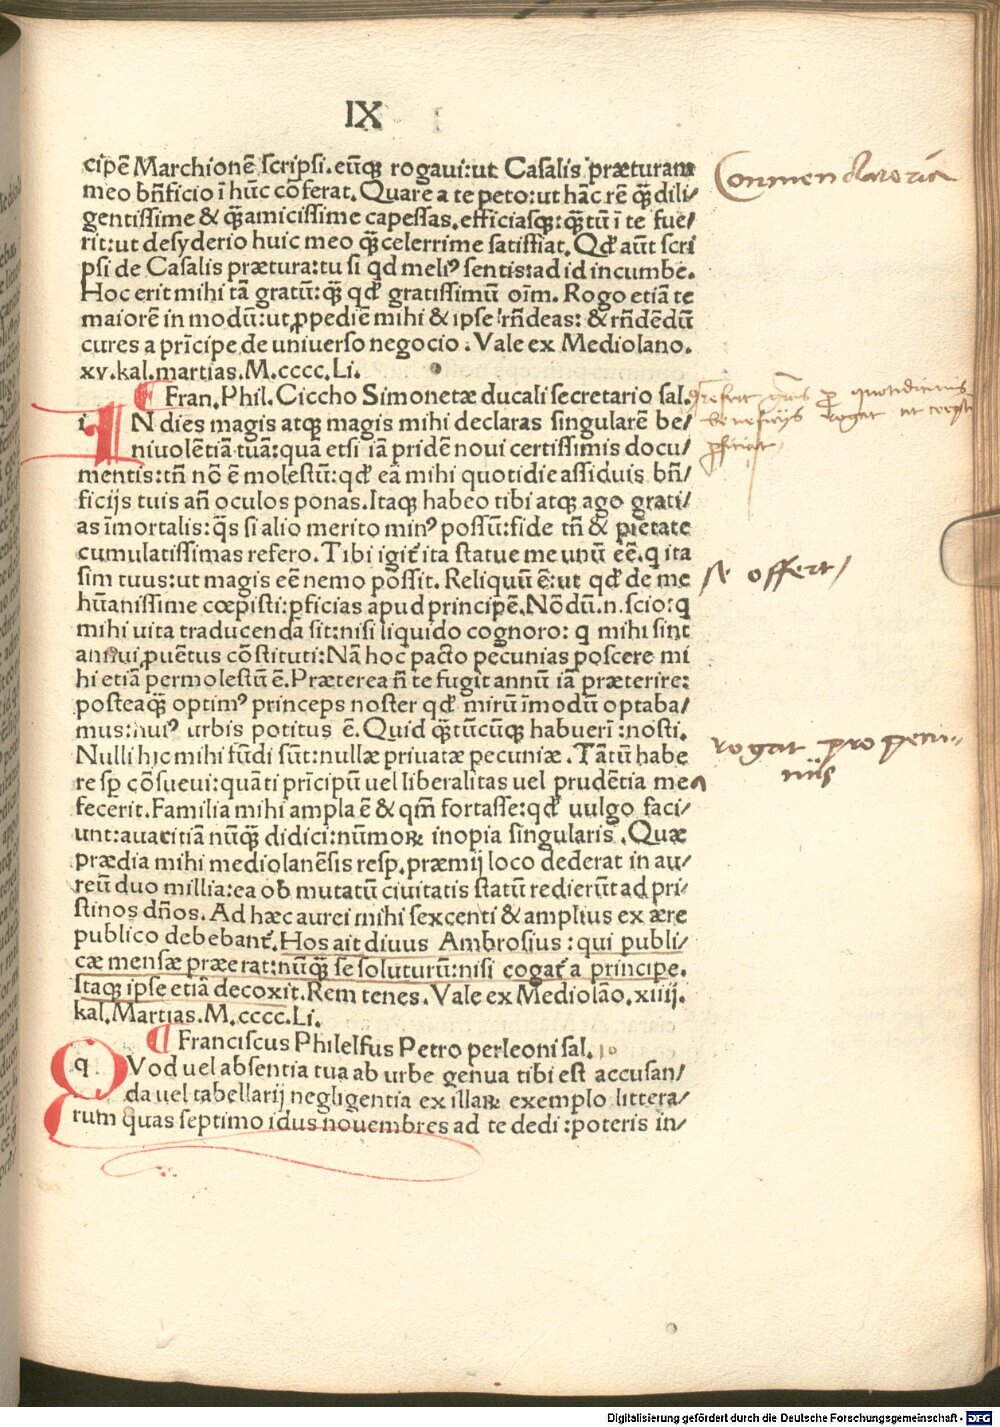 IX
cipē Marchionē scripsi. eūq; rogavi: ut Casalis præturam
meo bn̄ficio ī hūc cōferat. Quare a te peto: ut hāc rē q̄ȝ dili/
gentissime & q̄ȝ amicissime capessas. efficiasq;: q̄ȝtū ī te fue/
rit: ut desyderio huic meo q̄ȝ celerrime satisfiat. Qđ aūt scri
psi de Casalis prætura: tu si qd meliꝰ sentis: ad id incumbe.
Hoc erit mihi tā gratū: q̄ȝ qđ gratissimū oīm. Rogo etiā te
maiorē in modū: ut ꝓpediē mihi & ipse rn̄deas: & rn̄dēdū
cures a prīcipe de universo negocio. Vale ex Mediolano.
xv. kal. martias. M. cccc. Li.
¶ Fran. Phil. Ciccho Simonetæ ducali secretario sal.
i N dies magis atq; magis mihi declaras singularē be/
nivolētiā tuā: quā etsi iā pridē noui certissimis docu/
mentis: tn̄ nō ē molestū: qđ eā mihi quotidie assiduis bn̄/
ficijs tuis an̄ oculos ponas. Itaq; habeo tibi atq; ago grati/
as īmortalis: q̄s si alio merito minꝰ possū: fide tn̄ & pietate
cumulatissimas refero. Tibi igit̄ ita statue me unū eē. q ita
sim tuus: ut magis eē nemo possit. Reliquū ē: ut qđ de me
hūanissime cœpisti: pficias apud principē. Nōdū. n. scio: q
mihi uita traducenda sit: nisi liquido cognoro: q mihi sint
annui ꝓuētus cōstituti: Nā hoc pacto pecunias poscere mi
hi etiā permolestū ē. Præterea n̄ te fugit annū iā præterire:
posteaq̄ȝ optimꝰ princeps noster qđ mirū īmodū optaba/
mus: huiꝰ urbis potitus ē. Quid q̄ȝtūcūq; habuerī: nosti.
Nulli hic mihi fūdi sūt: nullæ priuatæ pecuniæ. Tātū habe
re sp cōsueui: quāti prīcipū uel liberalitas uel prudētia mea
fecerit. Familia mihi ampla ē & qm̄ fortasse: qđ uulgo faci/
unt: auaritiā nūq̄ȝ didici: nūmoꝝ inopia singularis. Quæ
prædia mihi mediolanēsis resp. præmij loco dederat in au/
reū duo millia: ea ob mutatū ciuitatis statū redierūt ad pri/
stinos dn̄os. Ad hæc aurei mihi sexcenti & amplius ex ære
publico debebant̄. Hos ait diuus Ambrosius: qui publi/
cæ mensæ præerat: nūq̄ȝ se soluturū: nisi cogat̄ a principe.
Itaq; ipse etiā decoxit. Rem tenes. Vale ex Mediolāo. xiiij.
kal. Martias. M. cccc. Li.
¶ Franciscus Philelfus Petro perleoni sal. 10
q Vod uel absentia tua ab urbe genua tibi est accusan/
da uel tabellarij negligentia ex illaꝝ exemplo littera/
rum quas septimo idus nouembres ad te dedi: poteris in/
Commendatoria
quotidianis
beneficijs rogat ut cœpta
pficiat
se offert
rogat pro pecu-
niis
Digitalisierung gefördert durch die Deutsche Forschungsgemeinschaft - DFG